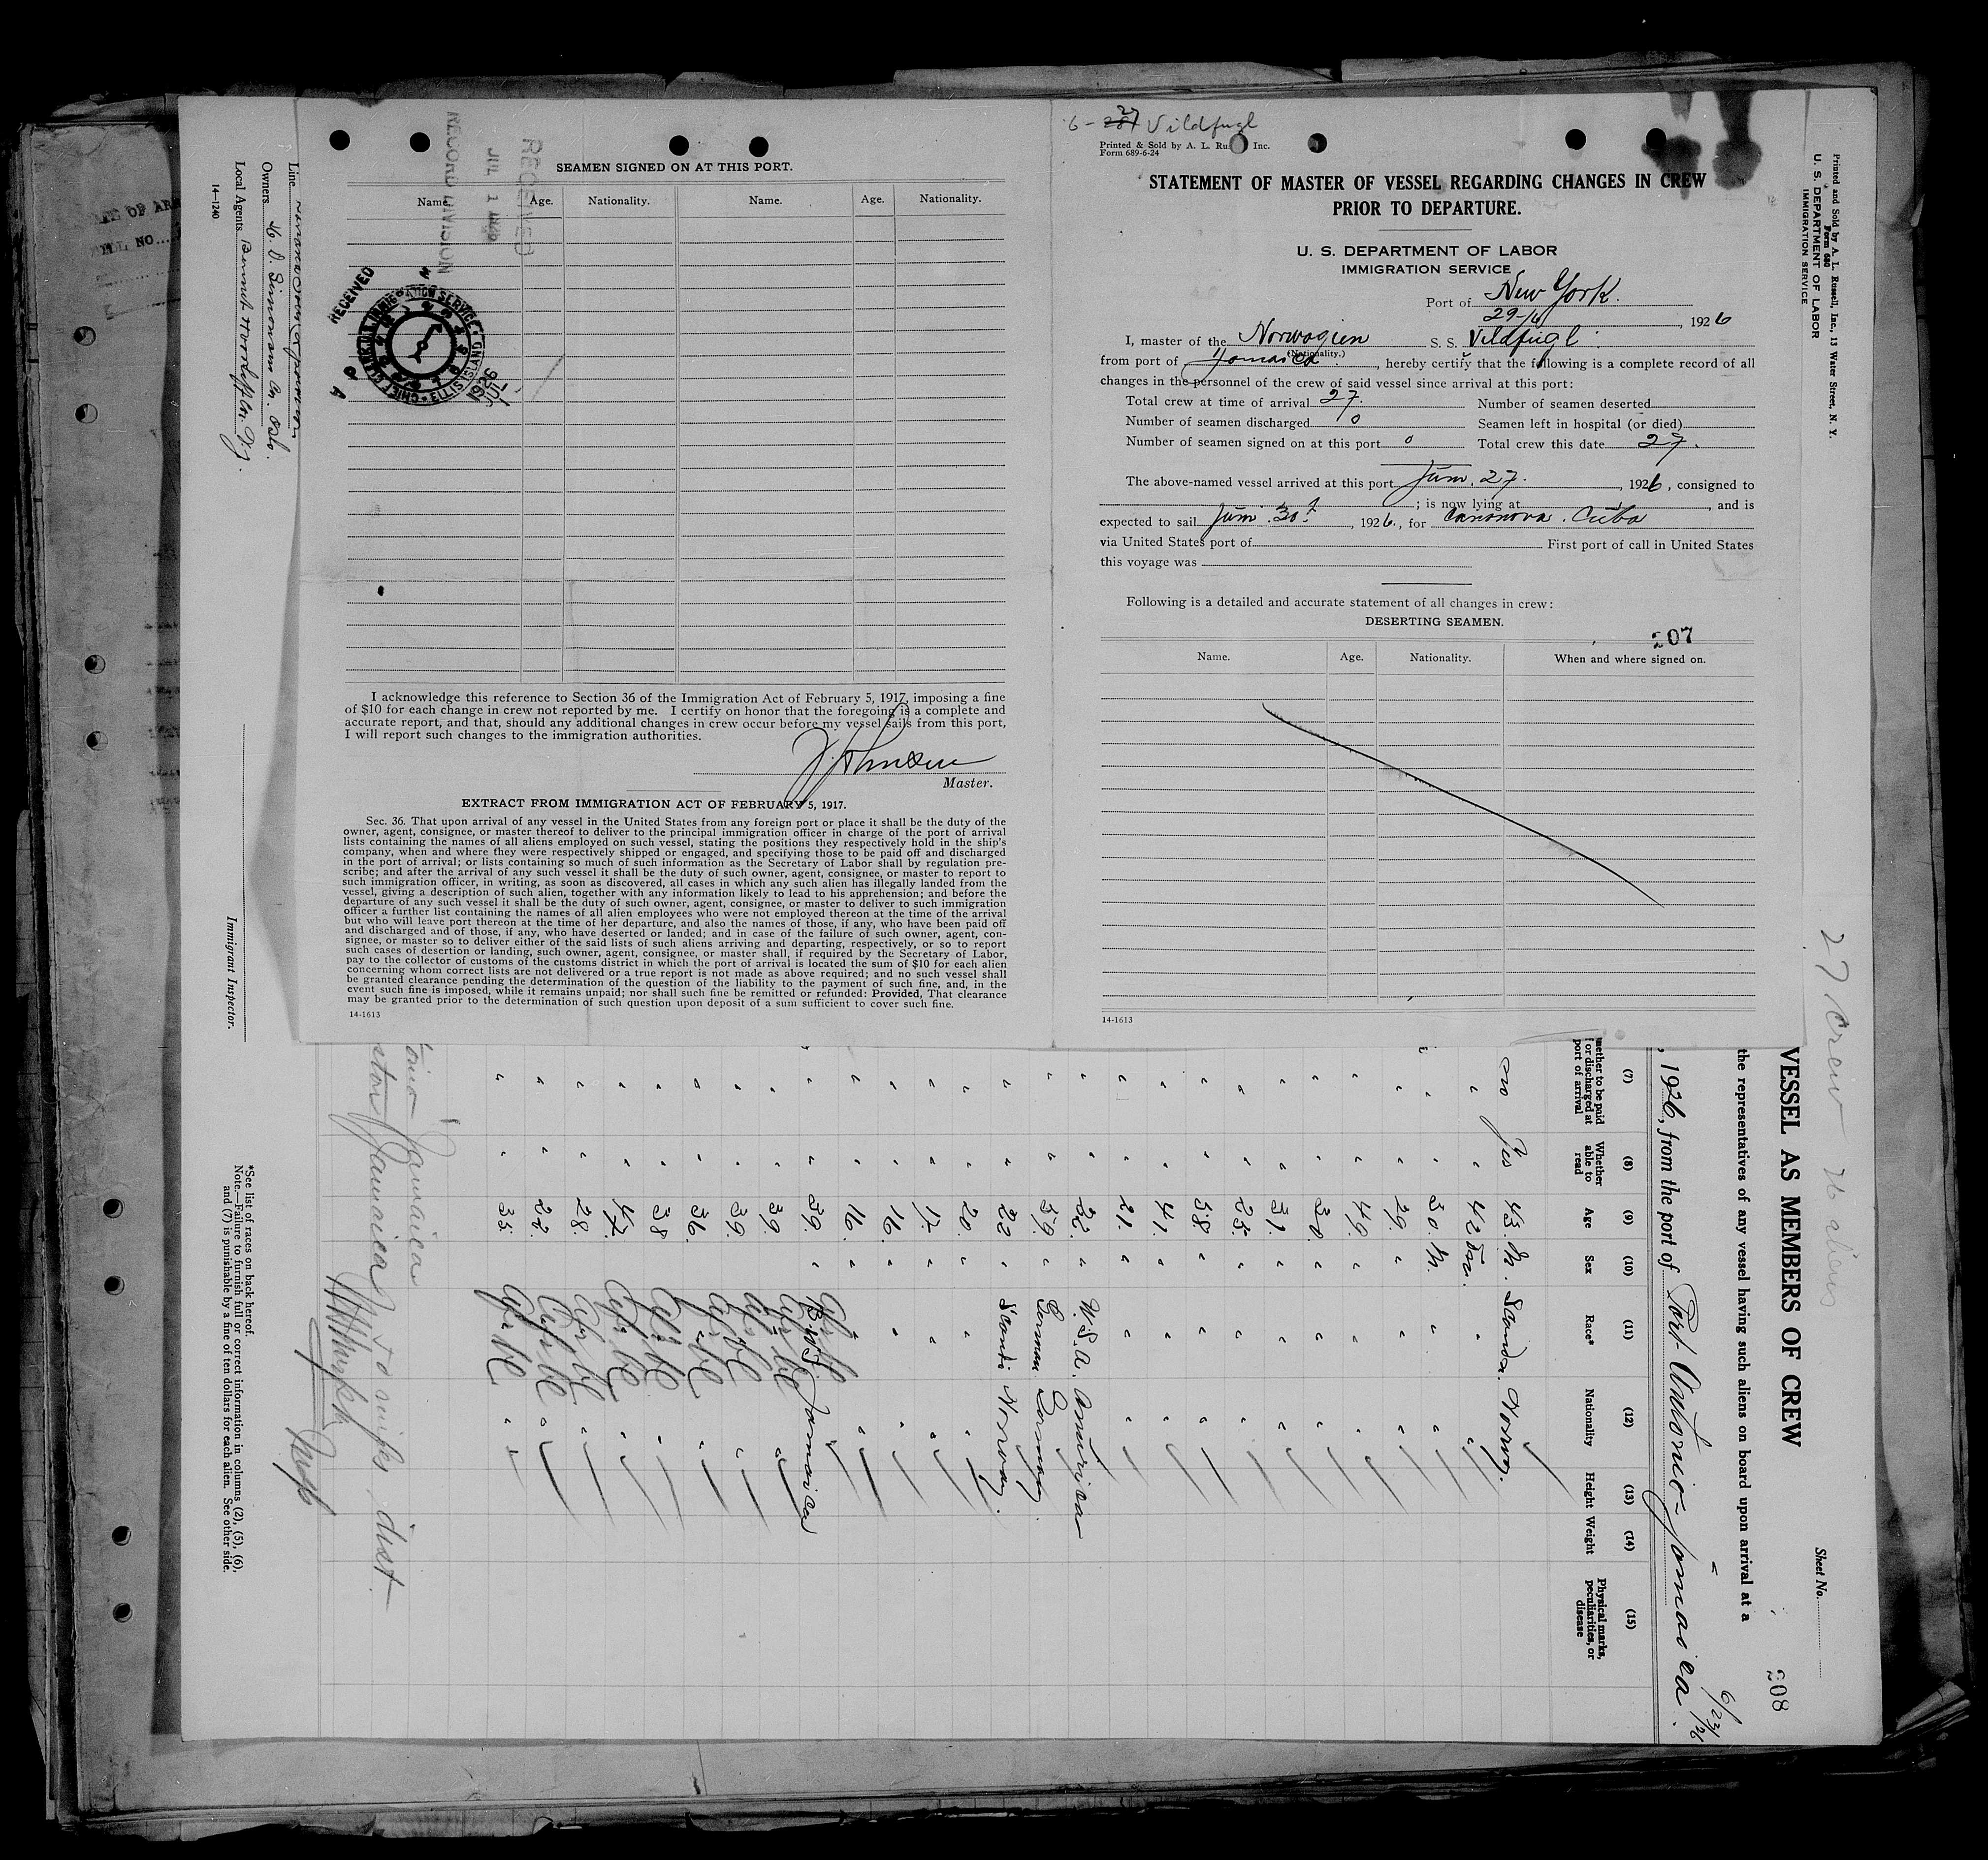 SEAMEN SIGNED ON AT THIS PORT.
Name. Age. Nationality. Name. Age. Nationality.
RECEIVED
JUL 1 1926
RECORD DIVISION
RECEIVED
CHIEF CLERK, U.S. IMMIGRATION SERVICE ELLIS ISLAND
1926
JUL 1
I acknowledge this reference to Section 36 of the Immigration Act of February 5, 1917, imposing a fine
of $10 for each change in crew not reported by me. I certify on honor that the foregoing is a complete and
accurate report, and that, should any additional changes in crew occur before my vessel sails from this port,
I will report such changes to the immigration authorities.
Master.
EXTRACT FROM IMMIGRATION ACT OF FEBRUARY 5, 1917.
Sec. 36. That upon arrival of any vessel in the United States from any foreign port or place it shall be the duty of the
owner, agent, consignee, or master thereof to deliver to the principal immigration officer in charge of the port of arrival
lists containing the names of all aliens employed on such vessel, stating the positions they respectively hold in the ship's
company, when and where they were respectively shipped or engaged, and specifying those to be paid off and discharged
in the port of arrival; or lists containing so much of such information as the Secretary of Labor shall by regulation pre-
scribe; and after the arrival of any such vessel it shall be the duty of such owner, agent, consignee, or master to report to
such immigration officer, in writing, as soon as discovered, all cases in which any such alien has illegally landed from the
vessel, giving a description of such alien, together with any information likely to lead to his apprehension; and before the
departure of any such vessel it shall be the duty of such owner, agent, consignee, or master to deliver to such immigration
officer a further list containing the names of all alien employees who were not employed thereon at the time of the arrival
but who will leave port thereon at the time of her departure, and also the names of those, if any, who have been paid off
and discharged and of those, if any, who have deserted or landed; and in case of the failure of such owner, agent, con-
signee, or master so to deliver either of the said lists of such aliens arriving and departing, respectively, or so to report
such cases of desertion or landing, such owner, agent, consignee, or master shall, if required by the Secretary of Labor,
pay to the collector of customs of the customs district in which the port of arrival is located the sum of $10 for each alien
concerning whom correct lists are not delivered or a true report is not made as above required; and no such vessel shall
be granted clearance pending the determination of the question of the liability to the payment of such fine, and, in the
event such fine is imposed, while it remains unpaid; nor shall such fine be remitted or refunded: Provided, That clearance
may be granted prior to the determination of such question upon deposit of a sum sufficient to cover such fine.
14-1613
Vildfugl
Printed & Sold by A. L. Inc.
Form 689-6-24
STATEMENT OF MASTER OF VESSEL REGARDING CHANGES IN CREW
PRIOR TO DEPARTURE.
U. S. DEPARTMENT OF LABOR
IMMIGRATION SERVICE
Port of New York.
29-6, 1926
I, master of the Norwegien S. S. Vildfugl
(Nationality.)
from port of Jamaica, hereby certify that the following is a complete record of all
changes in the personnel of the crew of said vessel since arrival at this port:
Total crew at time of arrival 27. Number of seamen deserted
Number of seamen discharged 0 Seamen left in hospital (or died)
Number of seamen signed on at this port 0 Total crew this date 27.
The above-named vessel arrived at this port Juni. 27., 1926, consigned to
; is now lying at , and is
expected to sail Juni. 30, 1926., for Cananova. Cuba
via United States port of First port of call in United States
this voyage was
Following is a detailed and accurate statement of all changes in crew:
DESERTING SEAMEN.
207
Name. Age. Nationality. When and where signed on.
14-1613
Printed and Sold by A. L. Russell, Inc., 13 Water Street, N. Y.
Form 680
U. S. DEPARTMENT OF LABOR
IMMIGRATION SERVICE
27 crew 26 aliens
Sheet No.
208
VESSEL AS MEMBERS OF CREW
the representatives of any vessel having such aliens on board upon arrival at a
, 1926, from the port of Port Antonio - Jamaica.
(7) (8) (9) (10) (11) (12) (13) (14) (15)
Whether to be paid off or discharged at port of arrival
Whether able to read
Age
Sex
Race*
Nationality
Height
Weight
Physical marks, peculiarities, or disease
no Yes 43. M. Scand. Norweg.
" " 42 " "
" " 30. M. " "
" " 29. " " "
" " 49. " " "
" " 30. " " "
" " 31. " " "
" " 25. " " "
" " 58. " " "
" " 41. " " "
" " 21. " " "
" " 32. " U.S.A. American
" " 59. " German Germany
" " 22 " Scandi Norway.
" " 20. " " "
" " 17. " " "
" " 16. " " "
" " 16. " " "
" " 39. " Jamaica
" " 39. "
" " 39. "
" " 36. "
" " 38 "
" " 47. "
" " 28. "
" " 22. "
" " 35. "
Jamaica
Jamaica
*See list of races on back hereof.
Note.—Failure to furnish full or correct information in columns (2), (5), (6),
and (7) is punishable by a fine of ten dollars for each alien. See other side.
Immigrant Inspector.
Line
Owners Oslo.
Local Agents
14-1240